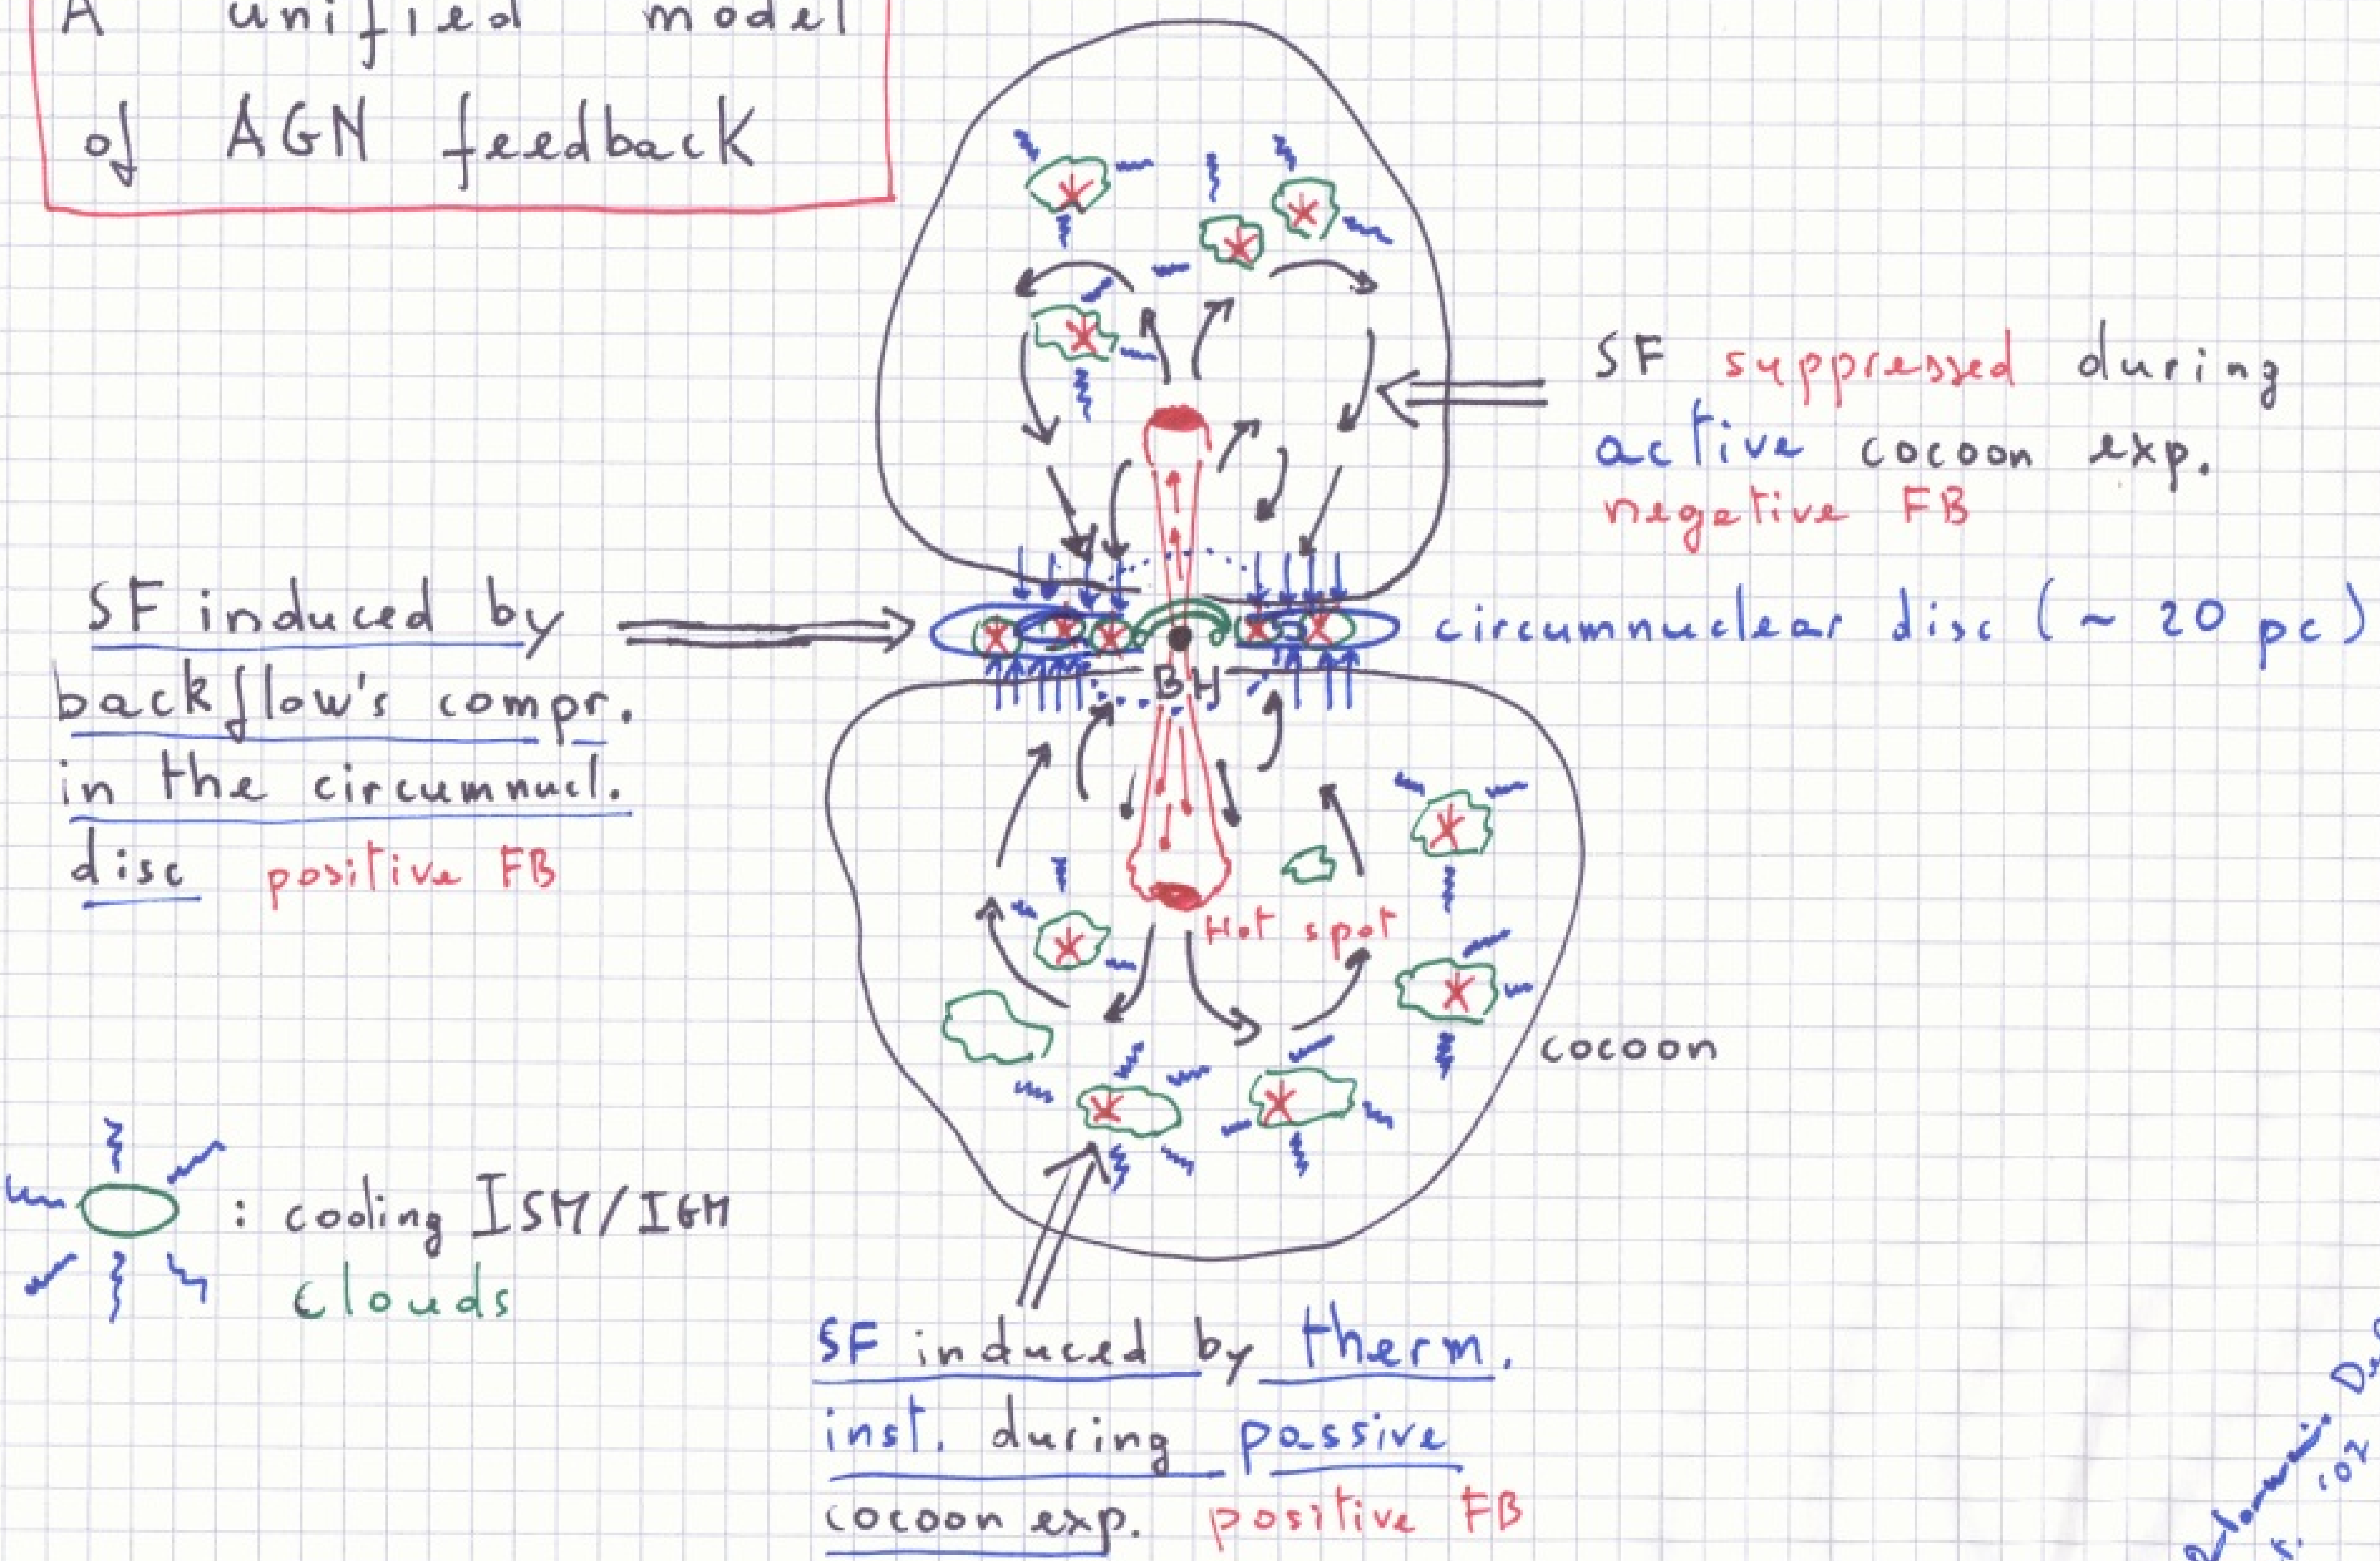 A unified model
of AGN feedback
SF suppressed during
active cocoon exp.
negative FB
SF induced by
backflow's compr.
in the circumnucl.
disc positive FB
circumnuclear disc (~ 20 pc)
BH
Hot spot
cocoon
: cooling ISM/IGM
clouds
SF induced by therm.
inst. during passive
cocoon exp. positive FB